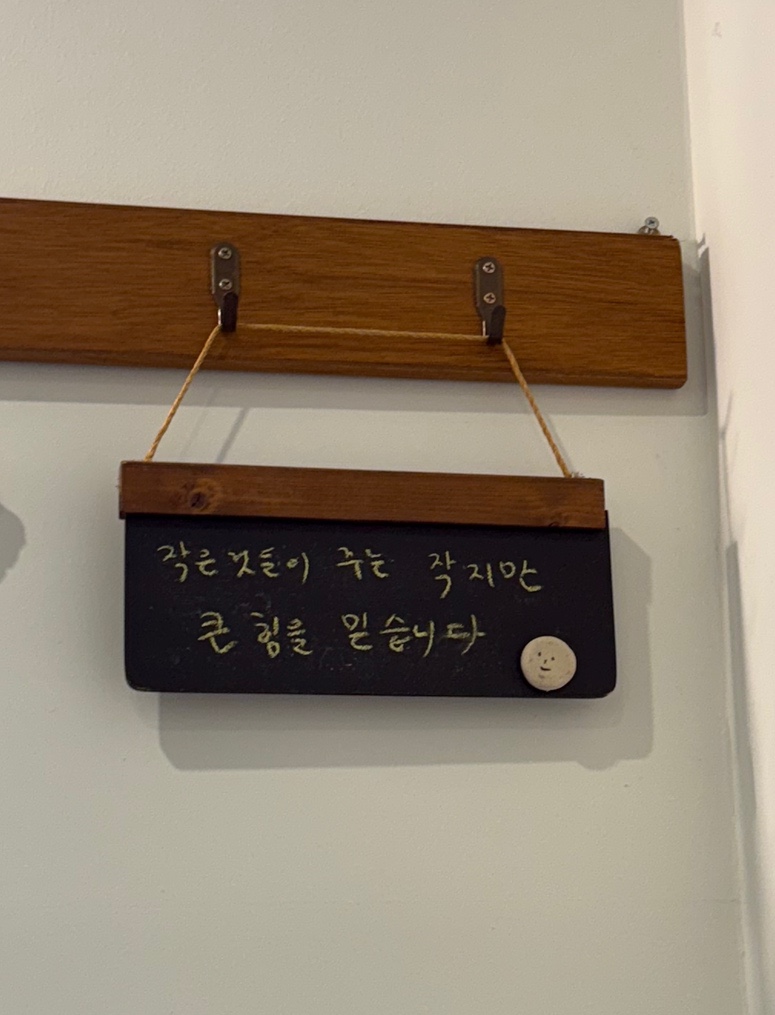 작은것들이 주는 작지만
큰 힘을 믿습니다